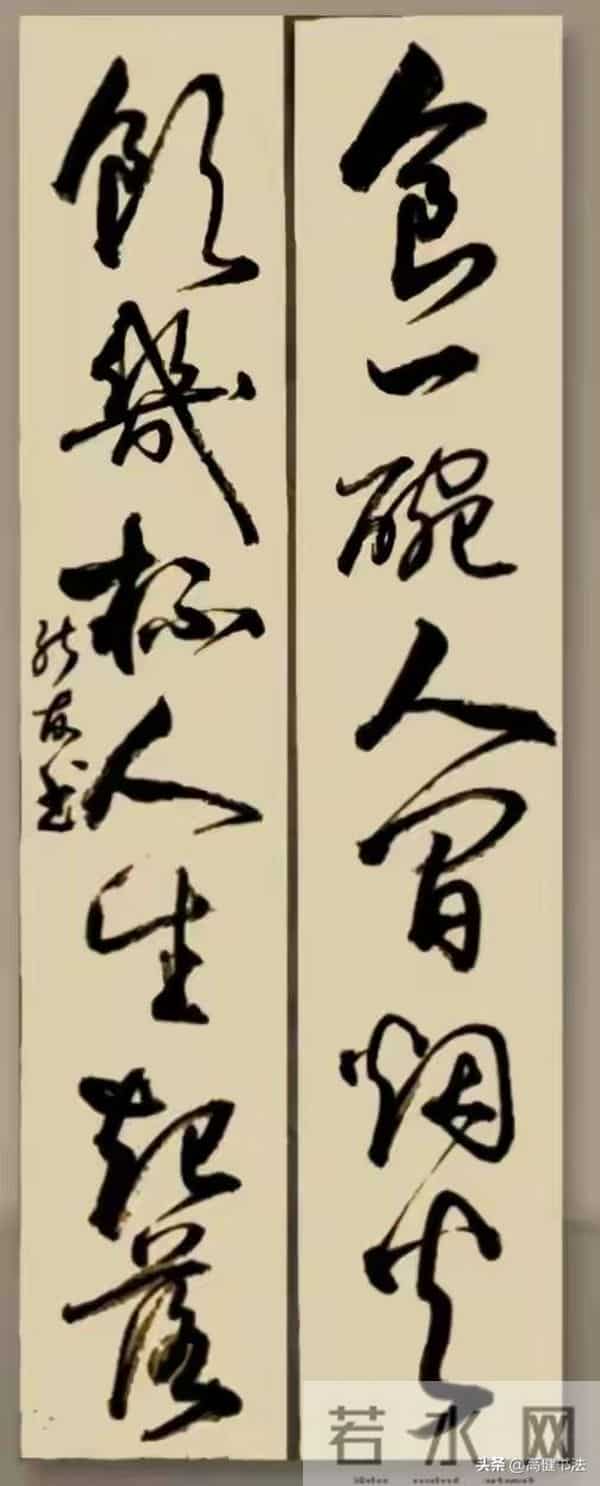 食一碗人间烟火
飲幾杯人生起落
若水网
头条@高健书法